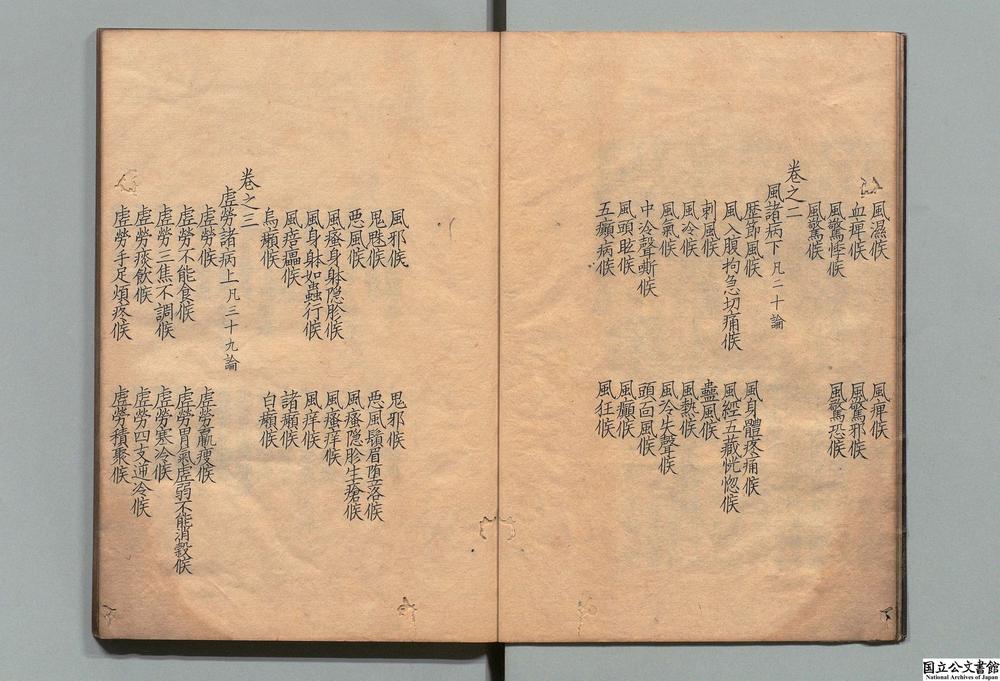 風濕候
風痺候
血痺候
風驚邪候
風驚悸候
風驚恐候
風驚候
卷之二
風諸病下 凡二十論
歷節風候
風身體疼痛候
風入腹拘急切痛候
風經五藏恍惚候
刺風候
蠱風候
風冷候
風熱候
風氣候
風冷失聲候
中冷聲嘶候
頭面風候
風頭眩候
風癲候
五癲病候
風狂候
風邪候
鬼邪候
鬼魅候
惡風鬚眉墮落候
惡風候
風瘙隐胗生瘡候
風瘙身躰隐胗候
風瘙痒候
風身躰如蟲行候
風痒候
風痦㿔候
諸癩候
烏癩候
白癩候
卷之三
虛勞諸病上 凡三十九論
虛勞候
虛勞羸瘦候
虛勞不能食候
虛勞胃氣虛弱不能消穀候
虛勞三焦不調候
虛勞寒冷候
虛勞痰飲候
虛勞四支逆冷候
虛勞手足煩疼候
虛勞積聚候
国立公文書館
National Archives of Japan